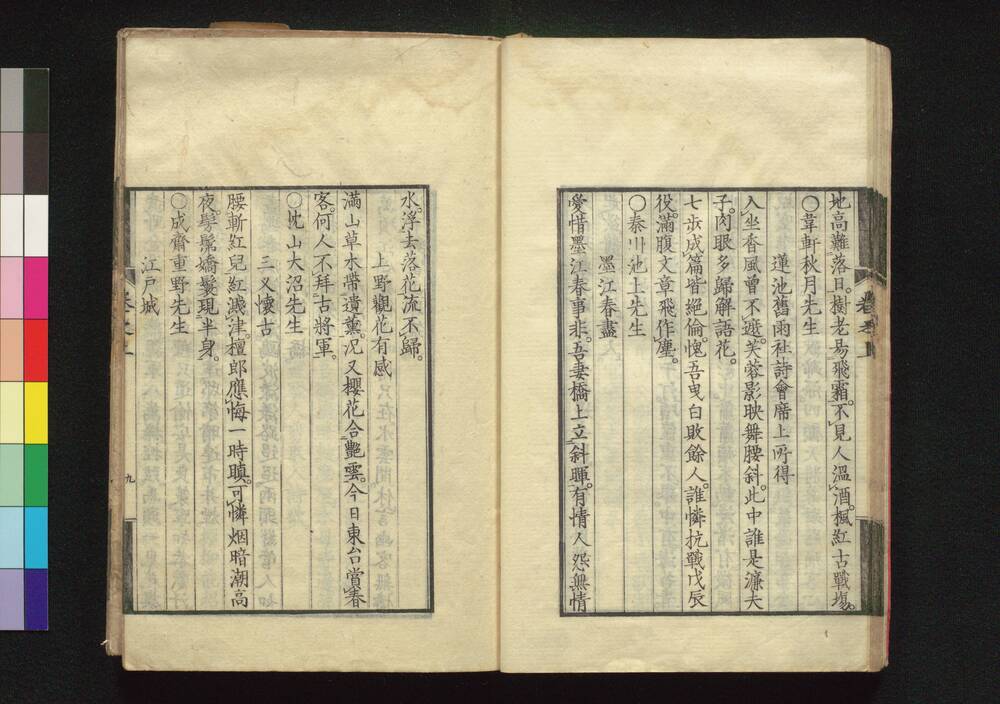 地高難落日。樹老易飛霜。不見人溫酒。楓紅古戰場。
○葦軒秋月先生
蓮池舊雨社詩會席上所得
入坐香風曾不遮。芙蓉影映舞腰斜。此中誰是濂夫
子。肉眼多歸解語花。
七步成篇皆絕倫。愧吾曳白敗餘人。誰憐抗戰戊辰
役。滿腹文章飛作塵。
○秦川池上先生
墨江春盡
愛惜墨江春事非。吾妻橋上立斜暉。有情人怨無情
水。浮去落花流不歸。
上野觀花有感
滿山草木帶遺薰。況又櫻花合艷雲。今日東台賞春
客。何人不拜古將軍。
○沈山大沼先生
三叉懷古
腰斬紅兒紅濺津。檀郎應悔一時瞋。可憐烟暗潮高
夜。髣髴嬌鬟現半身。
○成齋重野先生
江戶城
九